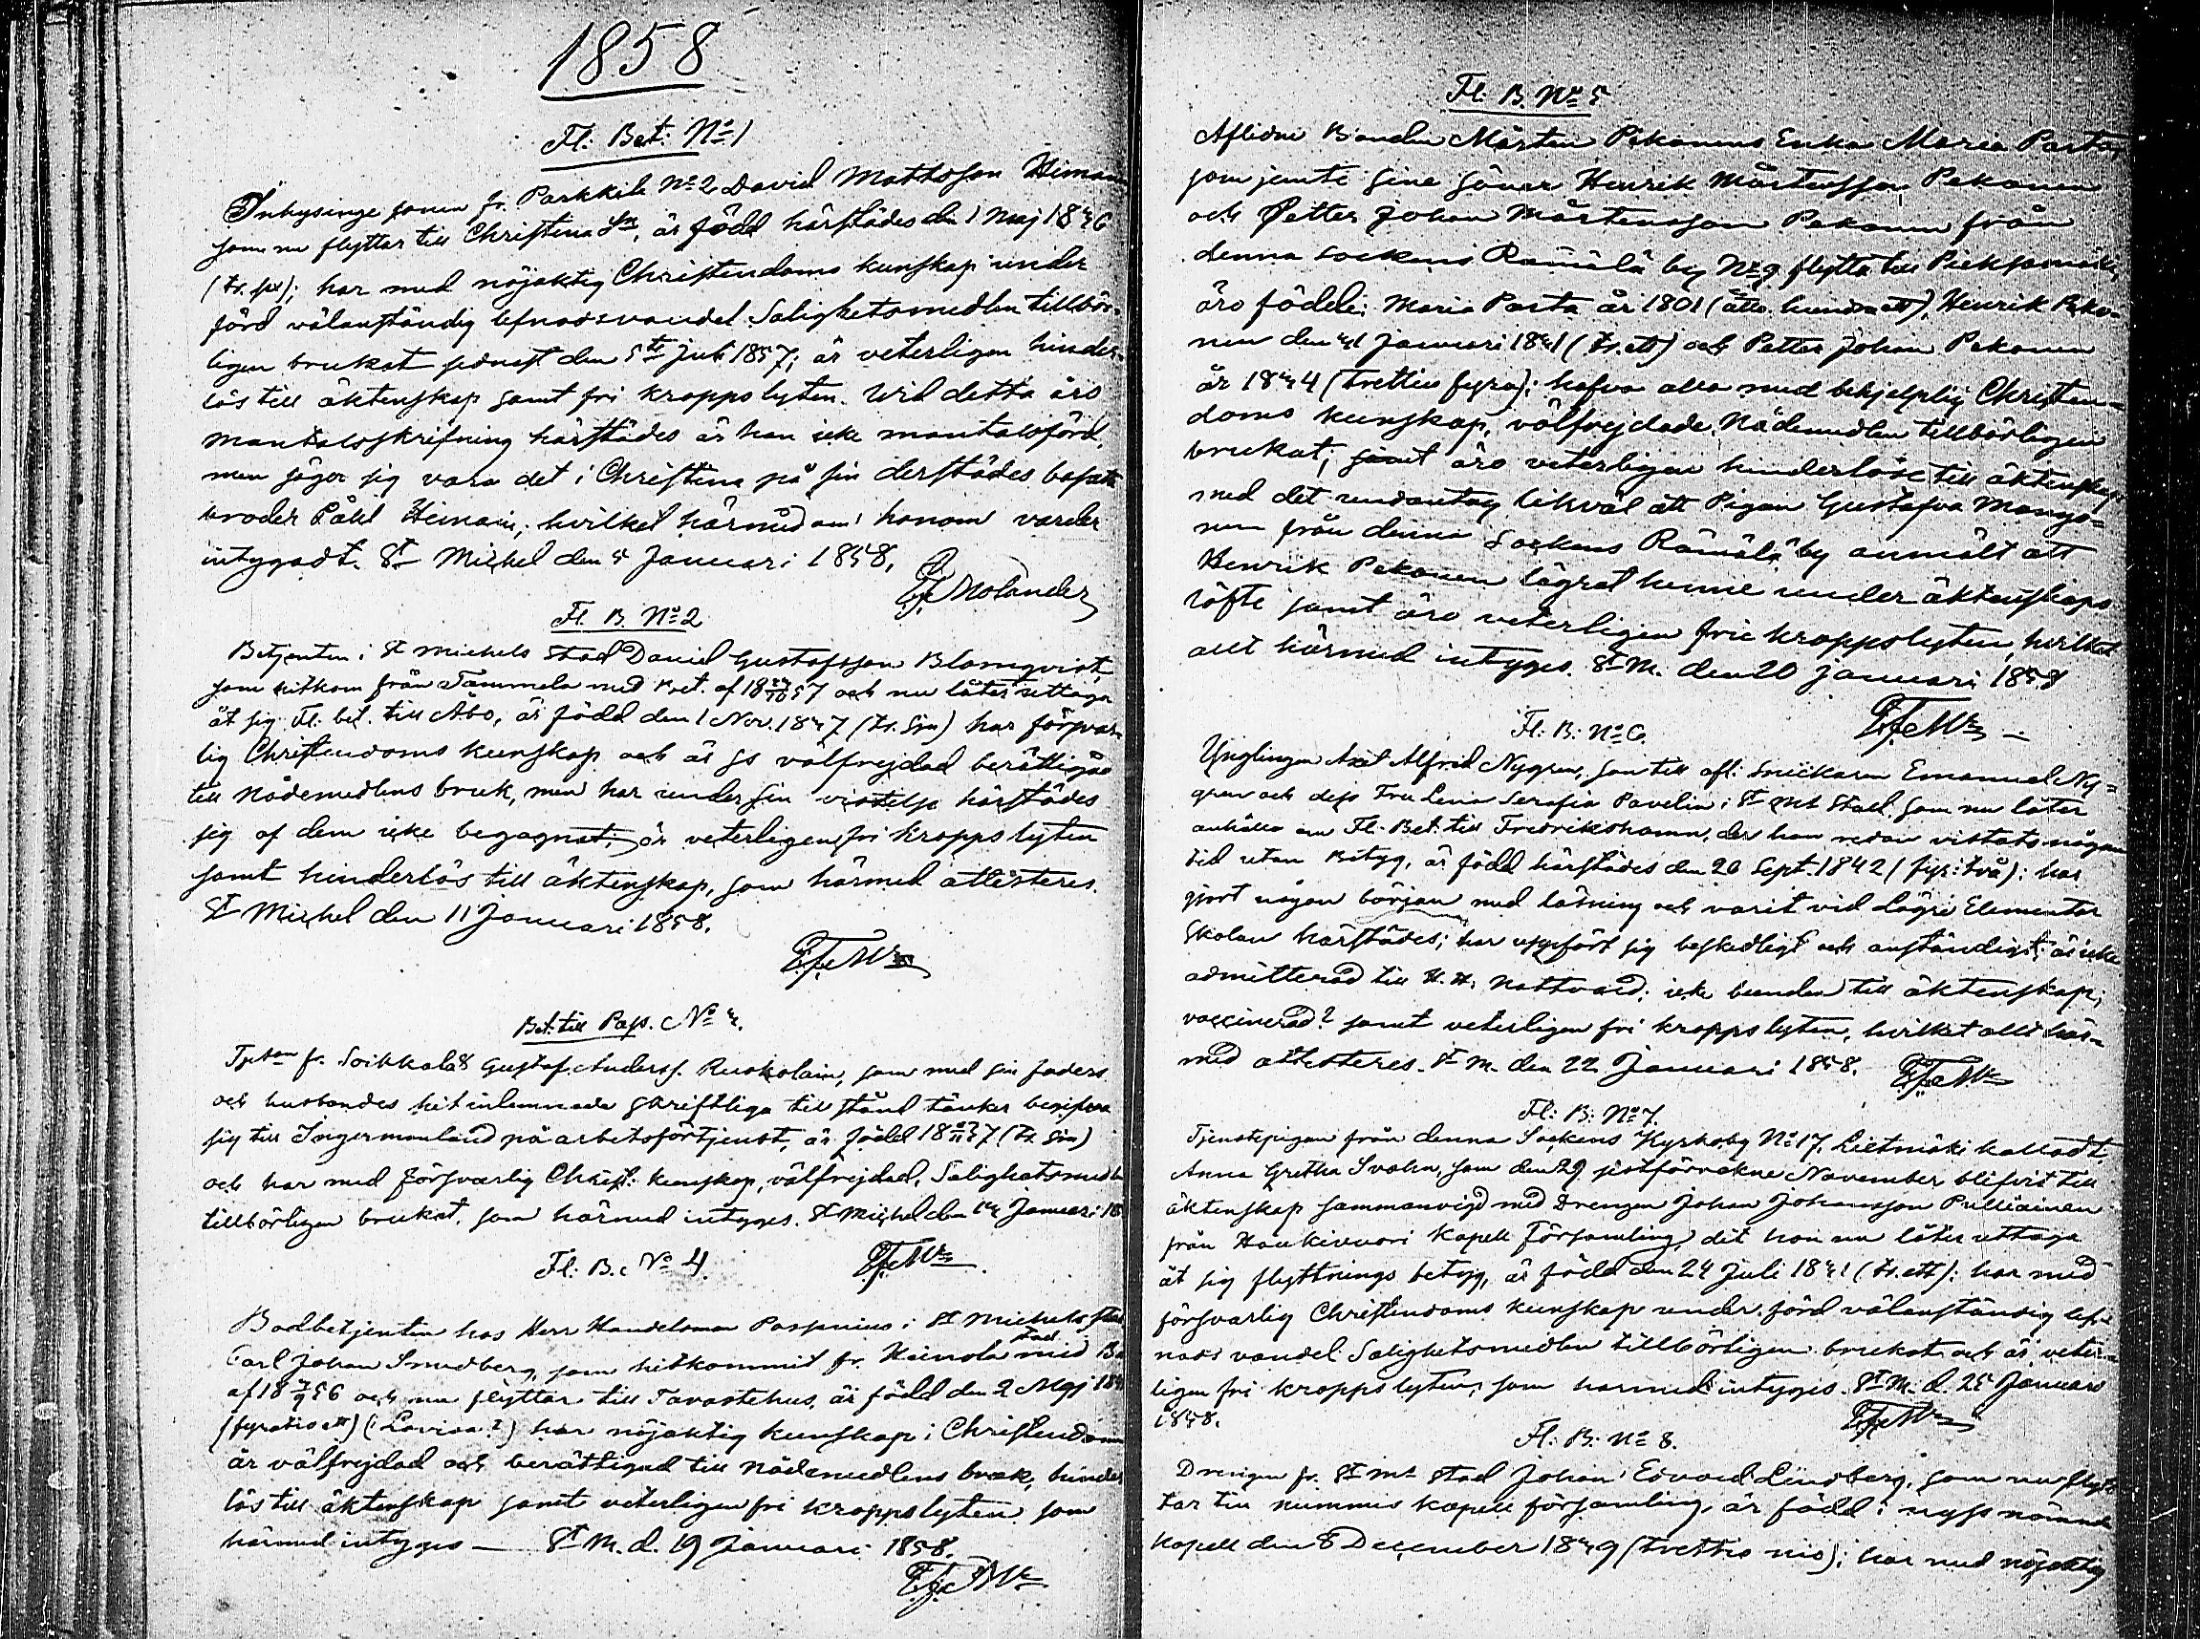 1858
Fl: Bet: No 1
Inhysinge sonen fr. Parkkila No 2 David Mattsson Heimain
som nu flyttar till Christina Sn, är född härstädes den 1 Maj 1836
(tr. sex); har med nöjaktig Christendoms kunskap under
förd välanständig lefnadsvandel Salighetsmedlen tillbör-
ligen brukat senast den 5te Juli 1857; är veterligen hinder-
lös till äktenskap samt fri kroppslyten. Vid detta års
mantalsskrifning härstädes är han icke mantalsförd,
men säger sig vara det i Christina på sin derstädes bosatte
broder Påhl Heimain; hvilket härmedom honom varder
intygadt. St Michel den 5 Januari 1858.
Molander
Fl. B. No 2
Betjenten i St Michels stad David Gustafsson Blomqvist,
som hitkom från Tammela med Bet. af 57 och nu låter uttaga
åt sig Fl. bet. till Åbo, är född den 1 Nov. 1837 (tr. sju) har försvar-
lig Christendoms kunskap och är ss välfrejdad berättigad
till nådemedlens bruk, men har under sin vistelse härstädes
sig af dem icke begagnat; är veterligen fri kroppslyten
samt hinderlös till äktenskap, som härmed attesteres.
St Michel den 11 Januari 1858.
Bet. till Pass. No 3.
fr. Soikkala 8 Gustaf Anderss. Ruokolain, som med sin faders
och husbondes hit inlemnade skriftliga tillstånd tänker begifva
sig till Ingermanland på arbetsförtjenst, är född 37 (tr. sju)
och har med försvarlig Christ. kunskap, välfrejdad, Salighetsmedlen
tillbörligen brukat, som härmed intyges. St Michel den 14 Januari 18
Fl: B. No 4.
Bodbetjenten hos Herr Handelsman Passenius i St Michels stad
Carl Johan Smedberg, som hitkommit fr. Heinola stad med Be
af 18 56 och nu flyttar till Tavastehus, är född den 2 Maj 184
(fyratio ett) (i Lovisa?) har nöjaktig kunskap i Christendom
är välfrejdad och berättigad till nådemedlens bruk, hinder
lös till äktenskap samt veterligen fri kroppslyten som
härmed intyges — St M. d. 19 Januari 1858.
Fl. B. No 5
Aflidne Bonden Mårten Pekonens Enka Maria Parta,
som jemte sine söner Henrik Mårtensson Pekonen
och Petter Johan Mårtensson Pekonen från
denna sockens Rämälä by No 9 flytta till Pieksämäki,
äro födde: Maria Parta år 1801 (ett), Henrik Peko-
nen den 31 Januari 1831 (tr. ett) och Petter Johan Pekonen
år 1834 (trettio fyra); hafva alla med behjelplig Christen-
doms kunskap, välfrejdade, Nådemedlen tillbörligen
brukat; samt äro veterligen hinderlöse till äktenskap
med det undantag likväl att Pigan Gustafva Mango-
nen från denna Sockens Rämälä by anmält att
Henrik Pekonen lägrat henne under äktenskaps
löfte samt äro veterligen frie kroppslyten, hvilket
allt härmed intyges. St M. den 20 Januari 1858
Fl: B: No 6.
Ynglingen Axel Alfred Nygren, son till afl: Snickaren Emanuel Ny-
gren och dess Fru Lena Serafia Pavelia i St Mls Stad, som nu låter
anhålla om Fl. Bet. till Fredrikshamn, der han redan vistats någon
tid utan Betyg, är född härstädes den 26 Sept. 1842 (fyr: två); har
gjort någon början med läsning och varit vid Lägre Elementar
Skolan härstädes; har uppfört sig beskedligt och anständigt; är icke
admitterad till H. H. Nattvard; icke bunden till äktenskap;
vaccinerad? samt veterligen fri kroppslyten, hvilket allt här-
med attesteres. St M. den 22 Januari 1858.
Fl: B: No 7.
Tjenstepigan från denna Sockens Kyrkoby No 17. Lietmäki kalladt,
Anna Gretha Svahn, som den 29 sistförvekne November blifvit till
äktenskap sammanvigd med Drengen Johan Johansson Pulliainen
från Haukivuori Kapell Församling, dit hon nu låter uttaga
åt sig flyttnings betyg, är född den 24 Juli 1831 (tr. ett); har med
försvarlig Christendoms kunskap under förd välanständig lef-
nads vandel Salighetsmedlen tillbörligen brukat och är veter-
ligen fri kroppslyten; som härmed intyges. St M. d. 25 Januari
1858.
Fl: B: No 8.
Drengen fr. St Mls stad Johan Edvard Lindberg, som nu flyt-
tar till Nummis kapell församling, är född i nyss nämnde
kapell den 8 December 1839 (trettio nio); har med nöjaktig